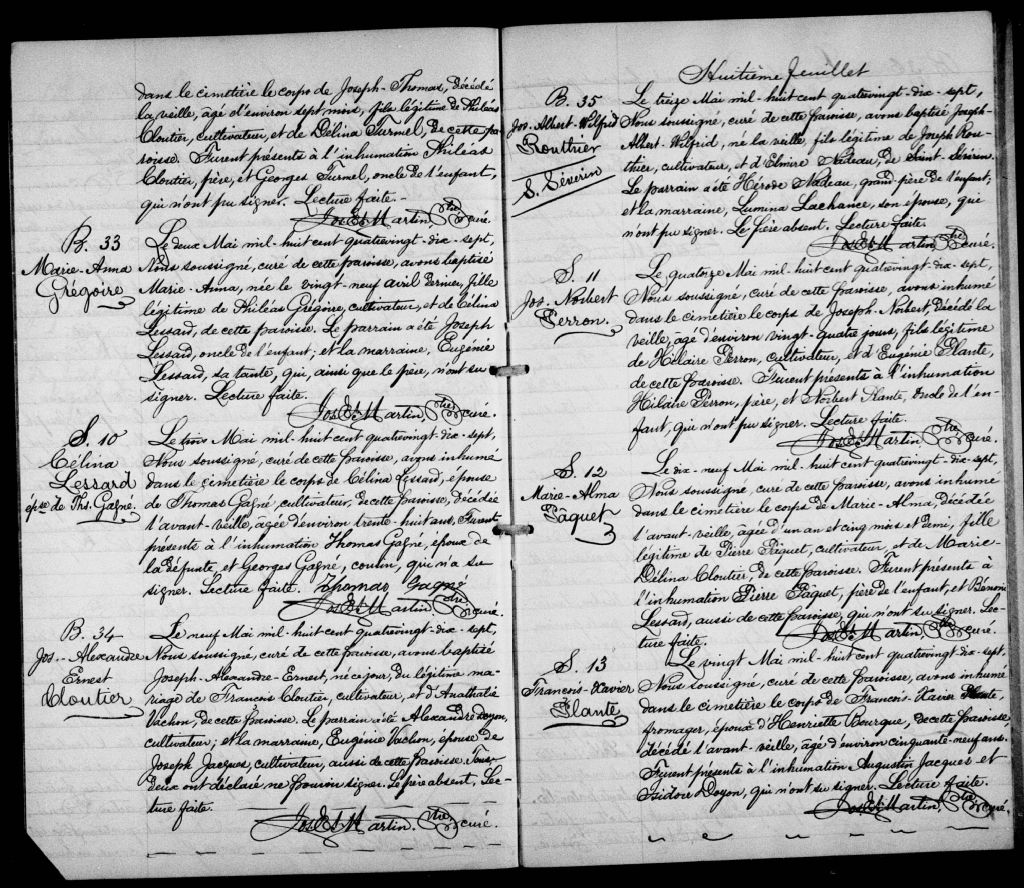 dans le cimetière le corps de Joseph-Thomas, décédé
la veille, âgé d'environ sept mois, fils légitime de Philéas
Cloutier, cultivateur, et de Délina Turmel, de cette pa-
roisse. Furent présents à l'inhumation Philéas
Cloutier, père, et Georges Turmel, oncle de l'enfant,
qui n'ont pu signer. Lecture faite.
Jos Et Martin, Ptre curé.
B. 33
Marie-Anna
Grégoire
Le deux Mai mil-huit cent quatrevingt-dix-sept,
Nous soussigné, curé de cette paroisse, avons baptisé
Marie-Anna, née le vingt-neuf avril dernier, fille
légitime de Philéas Grégoire, cultivateur, et de Célina
Lessard, de cette paroisse. Le parrain a été Joseph
Lessard, oncle de l'enfant; et la marraine, Eugénie
Lessard, sa tante, qui, ainsi que le père, n'ont su
signer. Lecture faite.
Jos Et Martin, Ptre curé.
S. 10
Célina
Lessard
épse de Ths. Gagné.
Le trois Mai mil-huit cent quatrevingt-dix-sept,
Nous soussigné, curé de cette paroisse, avons inhumé
dans le cimetière le corps de Célina Lessard, épouse
de Thomas Gagné, cultivateur, de cette paroisse, décédée
l'avant-veille, âgée d'environ trente-huit ans. Furent
présents à l'inhumation Thomas Gagné, époux de
la défunte, et Georges Gagné, cousin, qui n'a su
signer. Lecture faite. Thomas Gagné
Jos Et Martin, Ptre curé.
B. 34
Jos.-Alexandre
Ernest
Cloutier
Le neuf Mai mil-huit-cent quatrevingt-dix-sept,
Nous soussigné, curé de cette paroisse, avons baptisé
Joseph-Alexandre-Ernest, né ce jour, du légitime ma-
riage de François Cloutier, cultivateur, et d'Anathalie
Vachon, de cette paroisse. Le parrain a été Alexandre Doyon,
cultivateur; et la marraine, Eugénie Vachon, épouse de
Joseph Jacques, cultivateur, aussi de cette paroisse. Tous
deux ont déclaré ne pouvoir signer. Le père absent. Lec-
ture faite.
Jos Et Martin. Ptre curé.
Huitième feuillet
B. 35
Jos. Albert-Wilfrid
Routhier
S. Séverin
Le treize Mai mil-huit cent quatrevingt-dix-sept,
Nous soussigné, curé de cette paroisse, avons baptisé Joseph-
Albert-Wilfrid, né la veille, fils légitime de Joseph Rou-
thier, cultivateur, et d'Elmire Nadeau, de Saint-Séverin.
Le parrain a été Hérode Nadeau, grand-père de l'enfant;
et la marraine, Lumina Lachance, son épouse, qui
n'ont pu signer. Le père absent. Lecture faite.
Jos Et Martin, Ptre curé.
S. 11
Jos. Norbert
Perron.
Le quatorze Mai mil-huit cent quatrevingt-dix-sept,
Nous soussigné, curé de cette paroisse, avons inhumé
dans le cimetière le corps de Joseph-Norbert, décédé la
veille, âgé d'environ vingt-quatre jours, fils légitime
de Hilaire Perron, cultivateur, et d'Eugénie Plante,
de cette paroisse. Furent présents à l'inhumation
Hilaire Perron, père, et Norbert Plante, oncle de l'en-
fant, qui n'ont pu signer. Lecture faite.
Jos Et Martin Ptre curé.
S. 12
Marie-Alma
Pâquet
Le dix-neuf Mai mil-huit cent quatrevingt-dix-sept,
Nous soussigné, curé de cette paroisse, avons inhumé
dans le cimetière le corps de Marie-Alma, décédée
l'avant-veille, âgée d'un an et cinq mois et demi, fille
légitime de Pierre Pâquet, cultivateur, et de Marie-
Délina Cloutier, de cette paroisse. Furent présents à
l'inhumation Pierre Pâquet, père de l'enfant, et Bénoni
Lessard, aussi de cette paroisse, qui n'ont su signer. Lec-
ture faite. Jos Et Martin, Ptre curé.
S. 13
François-Xavier
Plante
Le vingt Mai mil-huit cent quatrevingt-dix-sept,
Nous soussigné, curé de cette paroisse, avons inhumé
dans le cimetière le corps de François-Xavier Plante
fromager, époux d'Henriette Bourque, de cette paroisse,
décédé l'avant-veille, âgé d'environ cinquante-neuf ans.
Furent présents à l'inhumation Augustin Jacques et
Isidore Doyon, qui n'ont su signer. Lecture faite.
Jos Et Martin, Ptre curé.